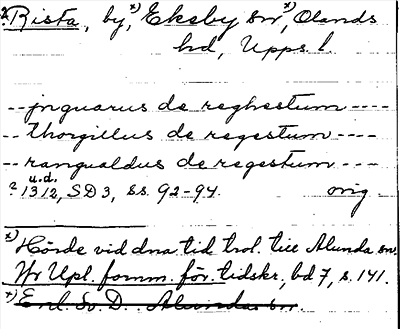 ? Rista, by, x) Ekeby sn x), Olands
hd, Upps. l.
-- jnguarus de reghestum ----
-- thorgillus de regestum ----
-- rangualdus de regestum ----
u.d.
? 1312, SD 3, ss. 92-94. orig
x) Hörde vid dna tid trol. till Alunda sn.
Jfr Upl. fornm. för. tidskr., bd 7, s. 141.
x) Enl. Sv. D. Alunda sn.